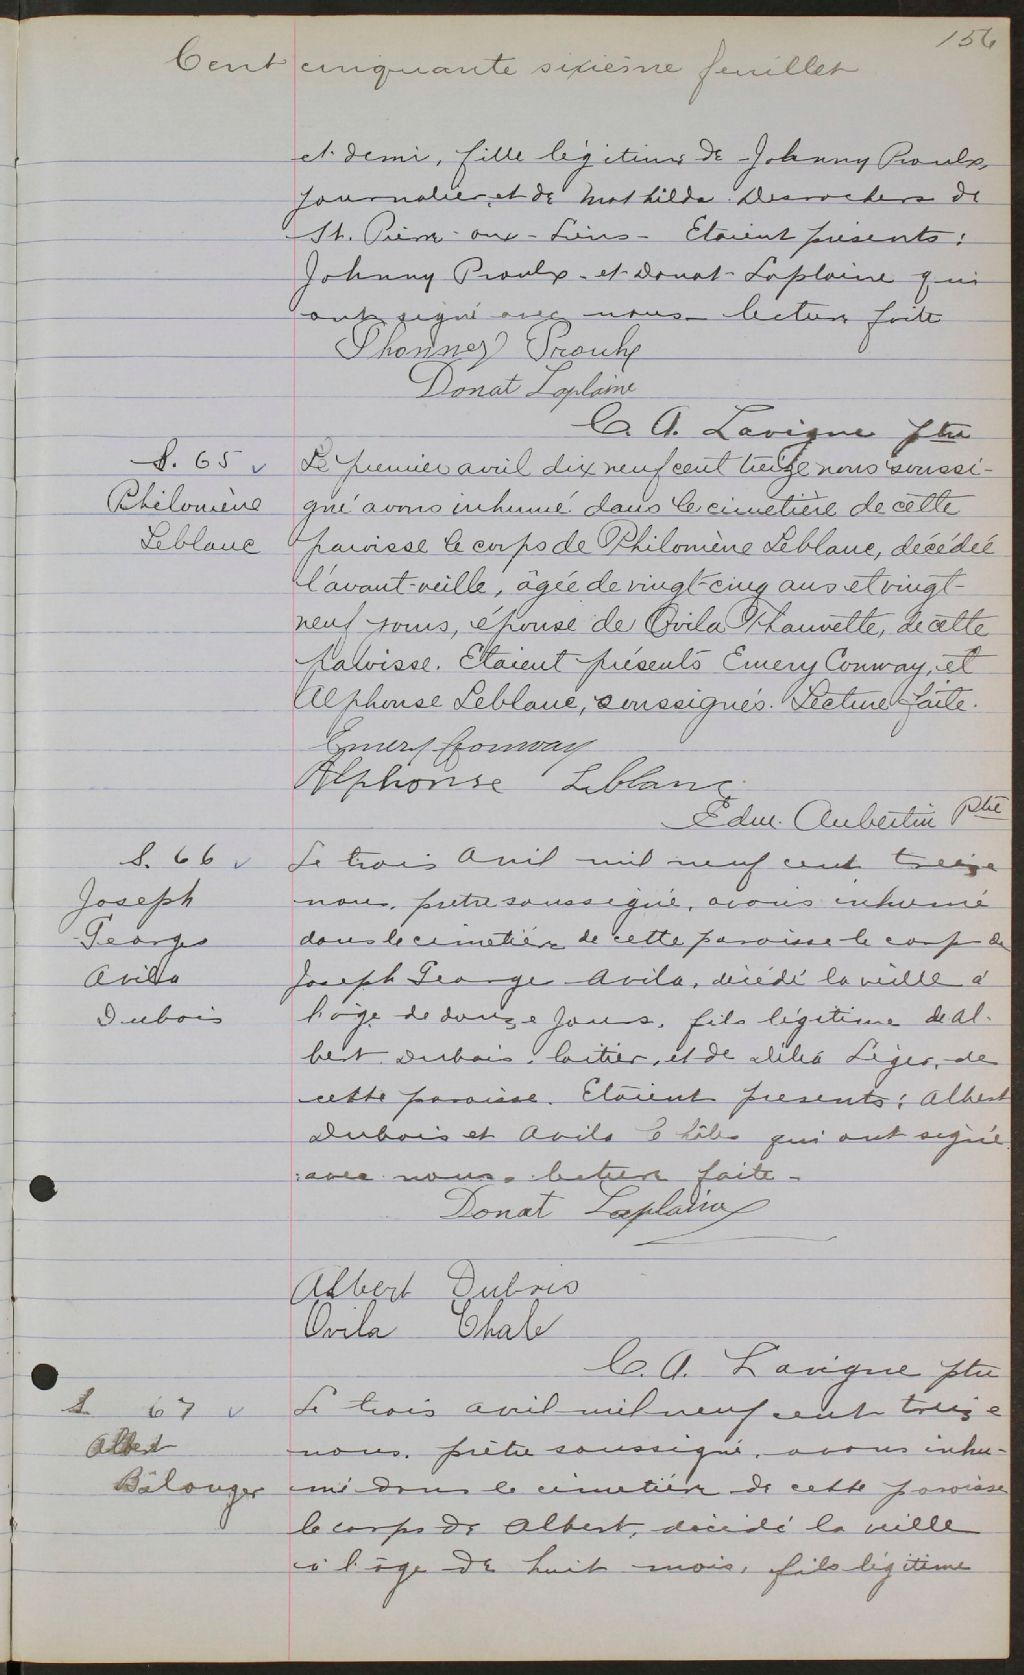 156
Cent cinquante sixième feuillet
et demi, fille légitime de Johnny Proulx,
journalier, et de Mathilda Desrochers de
St. Pierre-aux-Liens - Etaient présents :
Johnny Proulx et Donat Laplaine qui
ont signé avec nous - lecture faite
Jhonney Proulx
Donat Laplaine
C. A. Lavigne ptre
S. 65
Philomène
Leblanc
Le premier avril dix neuf cent treize nous soussi-
gné avons inhumé dans le cimetière de cette
paroisse le corps de Philomène Leblanc, décédée
l'avant-veille, âgée de vingt-cinq ans et vingt-
neuf jours, épouse de Ovila Thauvette, de cette
paroisse. Etaient présents Emery Conway, et
Alphonse Leblanc, soussignés. Lecture faite.
Emery Conway
Alphonse Leblanc
Edm. Aubertin Ptre
S. 66
Joseph
George
Avila
Dubois
Le trois avril mil neuf cent treize
nous, prêtre soussigné, avons inhumé
dans le cimetière de cette paroisse le corps de
Joseph George Avila, décédé la veille à
l'âge de douze jours, fils légitime de Al-
bert Dubois, laitier, et de Délia Léger, de
cette paroisse. Etaient présents : Albert
Dubois et Avila Châle qui ont signé
avec nous. lecture faite -
Donat Laplaine
Albert Dubois
Ovila Chale
C. A. Lavigne ptre
S. 67
Albert
Bélanger
Le trois avril mil neuf cent treize
nous, prêtre soussigné, avons inhu-
mé dans le cimetière de cette paroisse
le corps de Albert, décédé la veille
à l'âge de huit mois, fils légitime